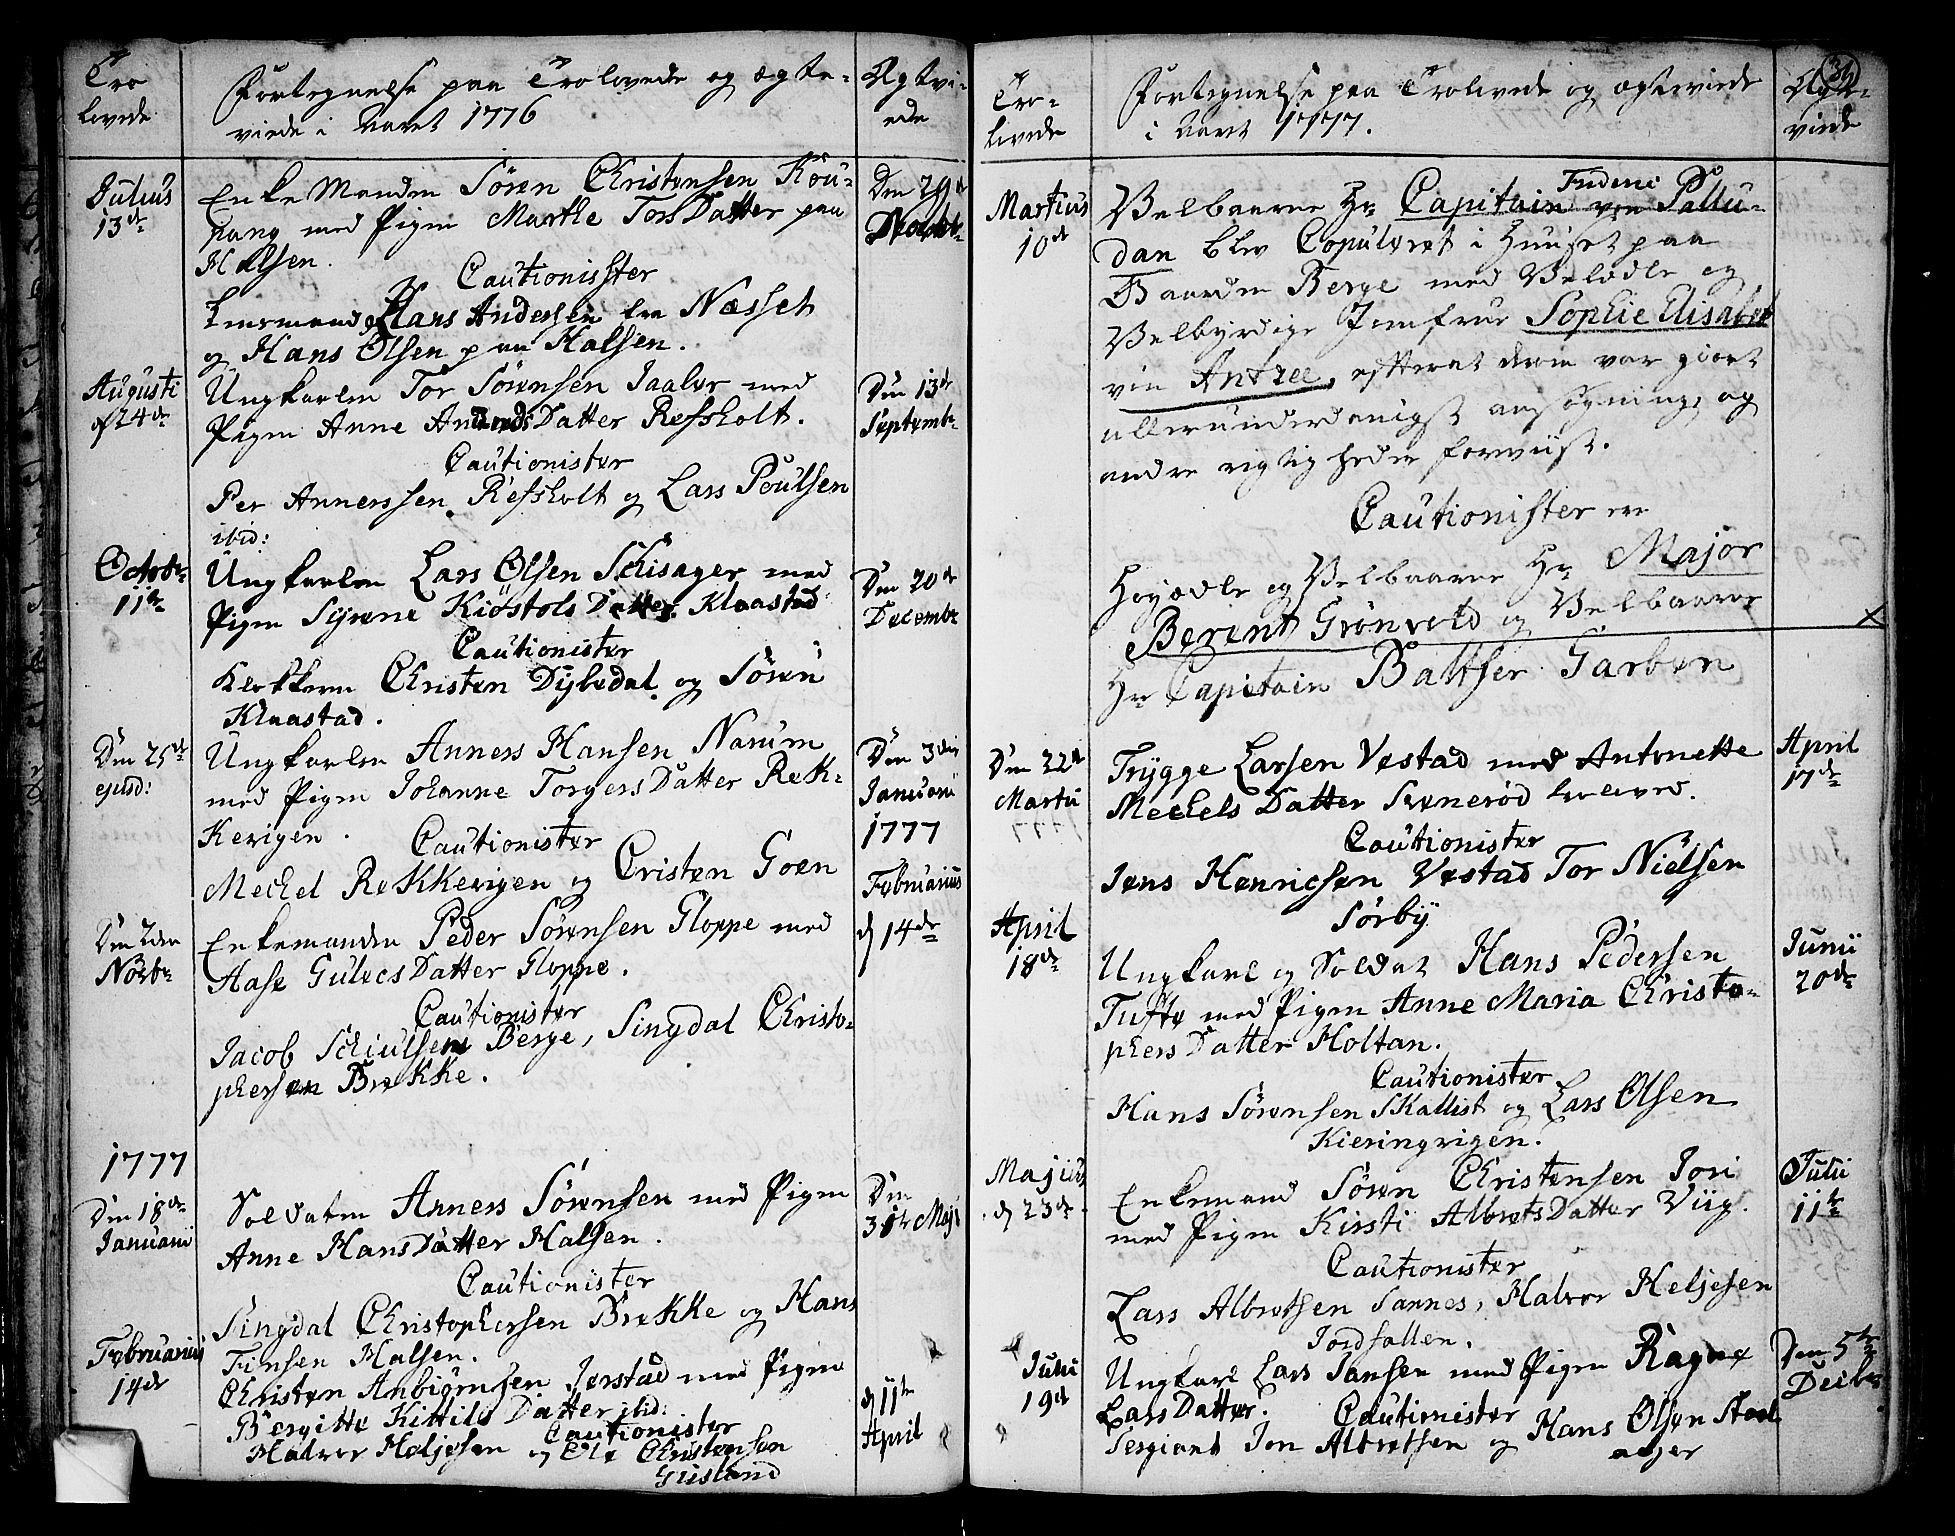 Tro
lovede
Fortegnelse paa Trolovede og ægte-
viede i Aaret 1776
Ægtvi-
ede
Julius
13de
Enke Manden Sören Christensen Kou-
pang med Pigen Marthe Tors Datter paa
Halsen.
Cautionister
Lensmand Hans Andersen fra Næsset
og Hans Olsen paa Halsen.
Den 29de
Augusti
d 24de
Ungkarlen Tor Sörensen Jaaler med
Pigen Anne Datter Refsholt.
Cautionister
Per Annerssen Refsholt og Lars Poulsen
ibid:
Den 13de
Septembr
Octobr
11te
Ungkarlen Lars Olsen Schisager med
Pigen Syrene Kiöstols Datter Klaastad
Cautionister
Klokkeren Christen Dybedal og Sören
Klaastad.
Den 20de
Decembr
Den 25de
ejusd:
Ungkarlen Anners Hansen Narum
med Pigen Johanne Torgers Datter Rek-
kevigen.
Cautionister
Mechel Rekkevigen og Cristen Goen
Den 3die
Januarii
1777
Den 2den
Novbr
Enkemanden Peder Sörensen Gloppe med
Aase Gulecs Datter Gloppe.
Cautionister
Jacob Schiulsen Berge, Singdal Christo-
phersen Brekke.
Februarius
d 14de
1777
Den 18de
Januarii
Soldaten Anners Sörensen med Pigen
Anne Hans Datter Halsen.
Cautionister
Singdal Christophersen Brekke og Hans
Finsen Halsen.
Den
31te Maji
Februarii
14de
Christen Anbiörnsen Jerstad med Pigen
Bergitte Kittils Datter ibid:
Cautionister
Halvor Heljesen og Ole Christensen
Grisland
d 11te
April
34
Tro-
lovede
Fortegnelse paa Trolovede og ægteviede
i Aaret 1777.
Ægt-
viede
Martius
10de
Velbaarne Hr Capitain von Pallu-
dan blev Copuleret i Huuset paa
Gaarden Berge med Velædle og
Velbyrdige Jomfrue Sophie Elisabet
von Antzee, efterat derom var giort
allerunderdanigst ansögning, og
andre rigtigheder forviist.
Cautionister ere
Höyædle og Velbaarne Hr Major
Berent Grönvold og Velbaarne
Hr Capitain Baltser Garben
Den 22de
Martii
Trygge Larsen Vestad med Antonette
Mechels Datter Svenerød troloved.
Cautionister
Jens Henricsen Vestad Tor Nielsen
Sörby
April
17de
April
18de
Ungkarl og Soldat Hans Pedersen
Tufte med Pigen Anne Maria Christo-
phers Datter Holtan.
Cautionister
Hans Sörensen Skallist og Lars Olsen
Kieringvigen.
Junii
20de
Majius
d 23de
Enkemand Sören Christensen Jori
med Pigen Kirsti Albrets Datter Viig.
Cautionister
Lars Albretsen Sannes, Halvor Heljesen
Jordfallen.
Julii
11te
Julii
19de
Ungkarl Lars Jansen med Pigen Ragne
Lars Datter. Cautionister
Sergiant Jon Albretsen og Hans Olsen Stod-
ager
Den 5te
Decbr